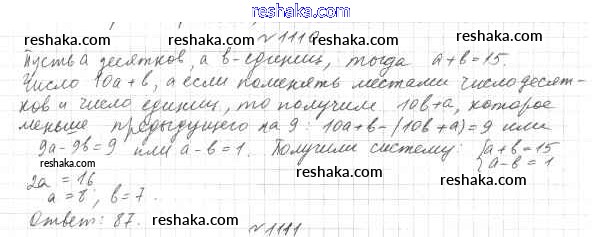 reshaka.com
№1110
reshaka.com reshaka.com
Пусть a десятков, а b-единиц, тогда a+b=15.
Число 10a+b, а если поменять местами число десят-
ков и число единиц, то получим 10b+a, которое
reshaka.com reshaka.com
меньше предыдущего на 9: 10a+b-(10b+a)=9 или
9a-9b=9 или a-b=1. Получили систему: {a+b=15
a-b=1
reshaka.com reshaka.com
2a=16
a=8, b=7.
reshaka.com
Ответ: 87.
reshaka.com
№1111